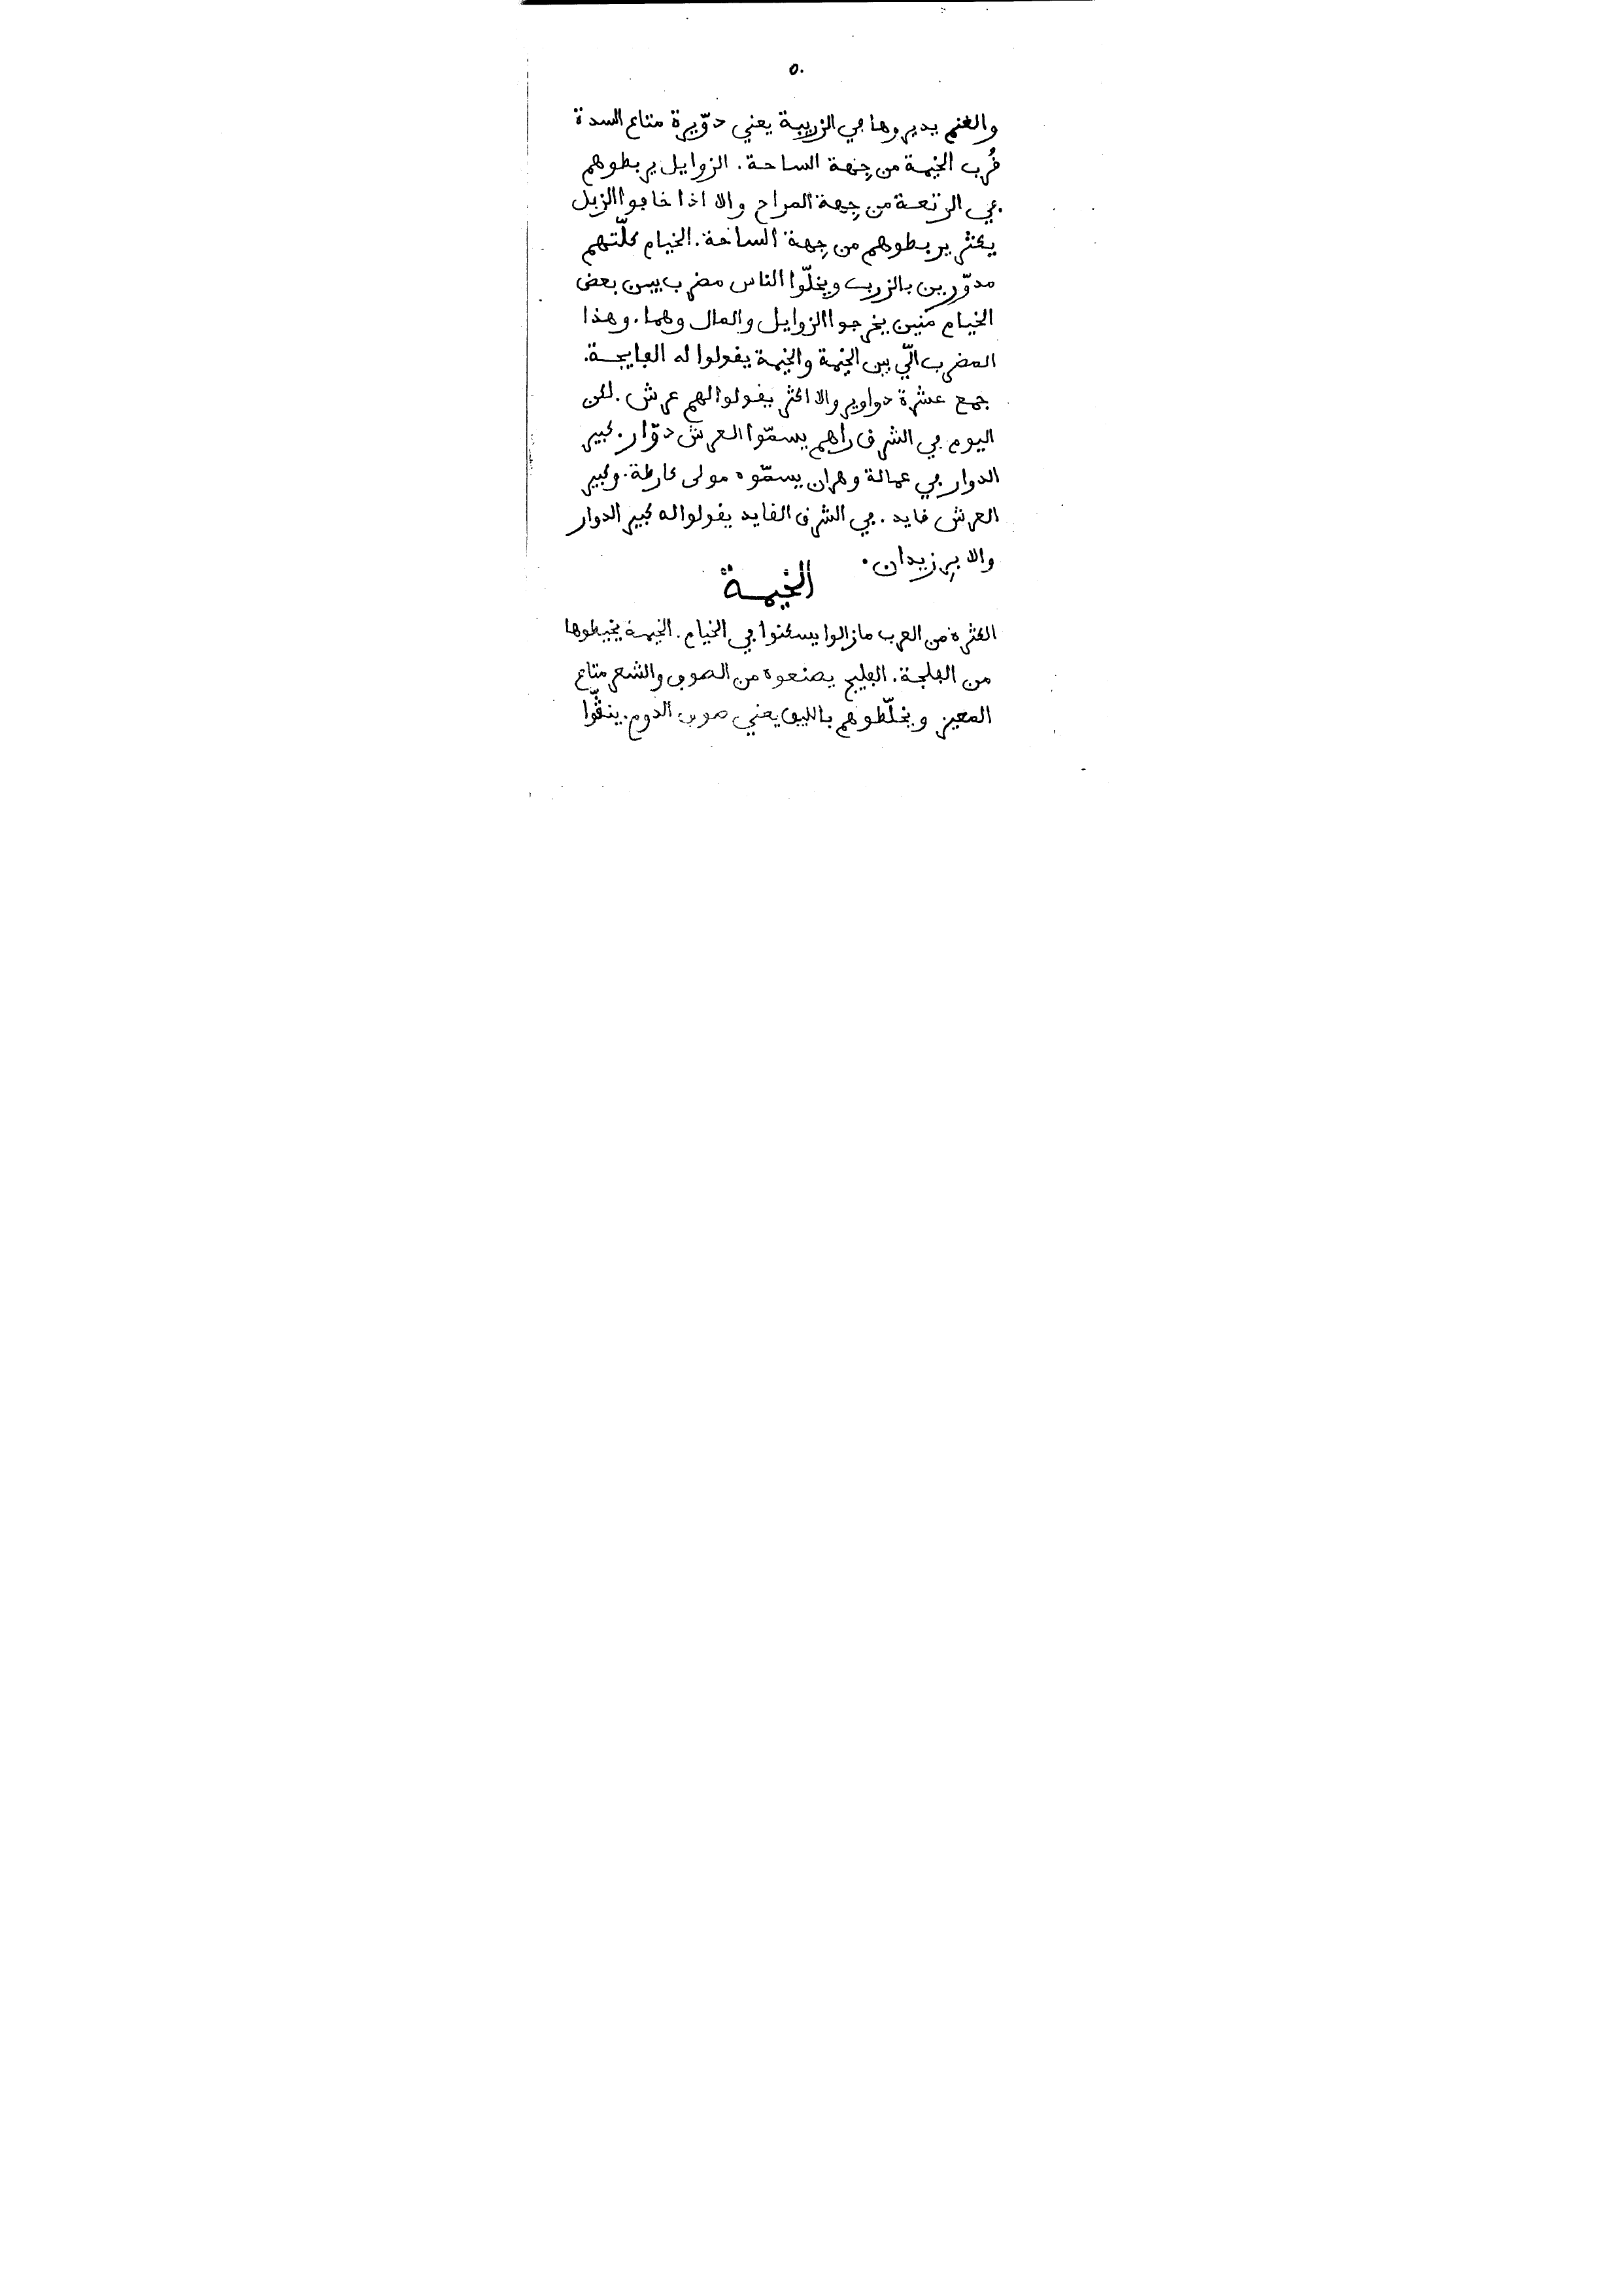 ٥٠
والغنم يديروها في الزريبة يعني دوّيرة متاع السدرة
قُرب الخيمة من جِهة الساحة. الزوايل يربطوهم
في الرتعة من جِهة المراح والا اذا خافوا الزبل
يكثر يربطوهم من جِهة الساحة. الخيام كلّتهم
مدوّرين بالزرب ويخلّوا الناس مضرب بين بعض
الخيام منين يخرجوا الزوايل والمال وهما. وهذا
المضرب الّي بين الخيمة والخيمة يقولوا له الفايجة.
جمع عشرة دواوير والا اكثر يقولوا لهم عرش. لكن
اليوم في الشرق راهم يسمّوا العرش دوّار. كبير
الدوار في عمالة وهران يسمّوه مولى كارطة. وكبير
العرش قايد. في الشرق القايد يقولوا له كبير الدوار
والا بِرزيدان.
الخيمة
الكثرة من العرب مازالوا يسكنوا في الخيام. الخيمة يخيطوها
من الفلجة. الفليج يصنعوه من الصوف والشعر متاع
المعيز ويخلّطوهم بالليف يعني صوف الدوم. ينقّوا